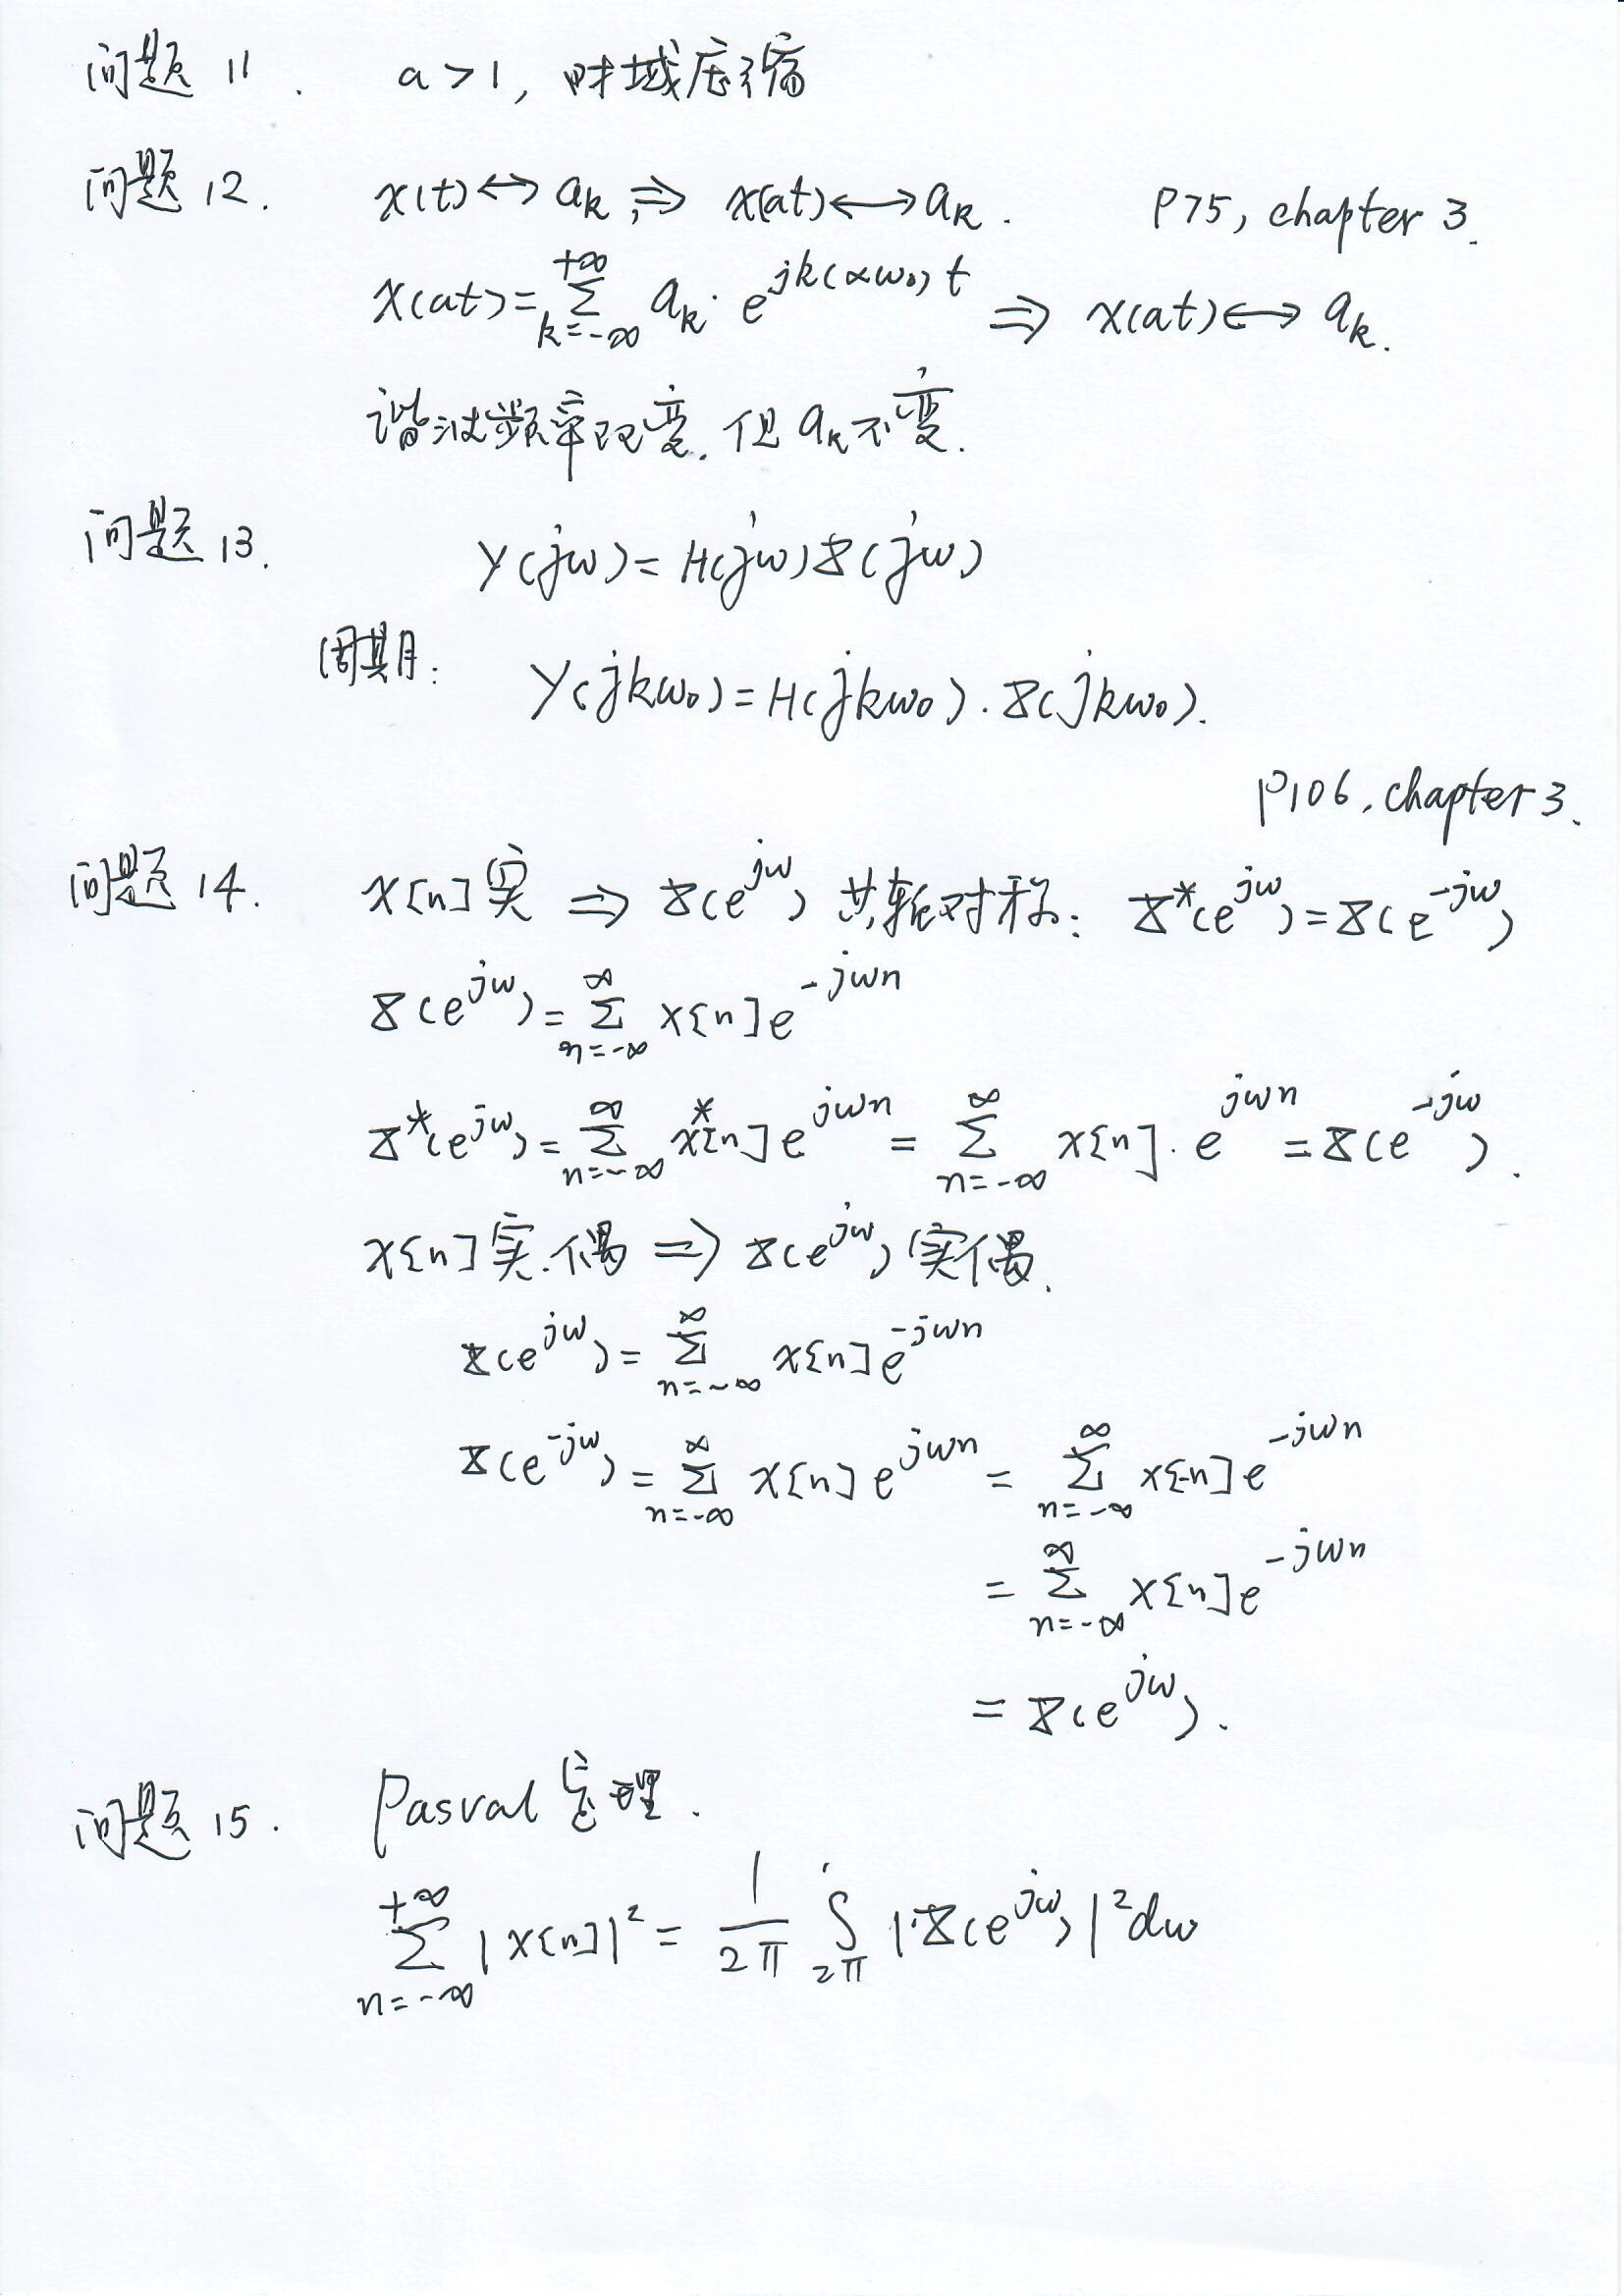 问题 11. a>1, 时域压缩
问题 12. x(t)↔a_k, ⇒ x(at)⟷a_k. P75, chapter 3.
x(at)=∑_{k=-∞}^{+∞} a_k·e^{jk(αω₀)t} ⇒ x(at)⟷a_k.
谐波频率改变. 但 a_k 不变.
问题 13. Y(jω)=H(jω)X(jω)
周期: Y(jkω₀)=H(jkω₀)·X(jkω₀).
P106, chapter 3.
问题 14. x[n]实 ⇒ X(e^{jω})共轭对称: X*(e^{jω})=X(e^{-jω})
X(e^{jω})=∑_{n=-∞}^{∞} x[n]e^{-jωn}
X*(e^{jω})=∑_{n=-∞}^{∞} x*[n]e^{jωn}=∑_{n=-∞}^{∞} x[n]·e^{jωn}=X(e^{-jω}).
x[n]实.偶 ⇒ X(e^{jω})实偶.
X(e^{jω})=∑_{n=-∞}^{∞} x[n]e^{-jωn}
X(e^{-jω})=∑_{n=-∞}^{∞} x[n]e^{jωn}=∑_{n=-∞}^{∞} x[-n]e^{-jωn}
=∑_{n=-∞}^{∞} x[n]e^{-jωn}
=X(e^{jω}).
问题 15. Pasval 定理.
∑_{n=-∞}^{+∞} |x[n]|²=1/2π ∫_{2π} |X(e^{jω})|²dω